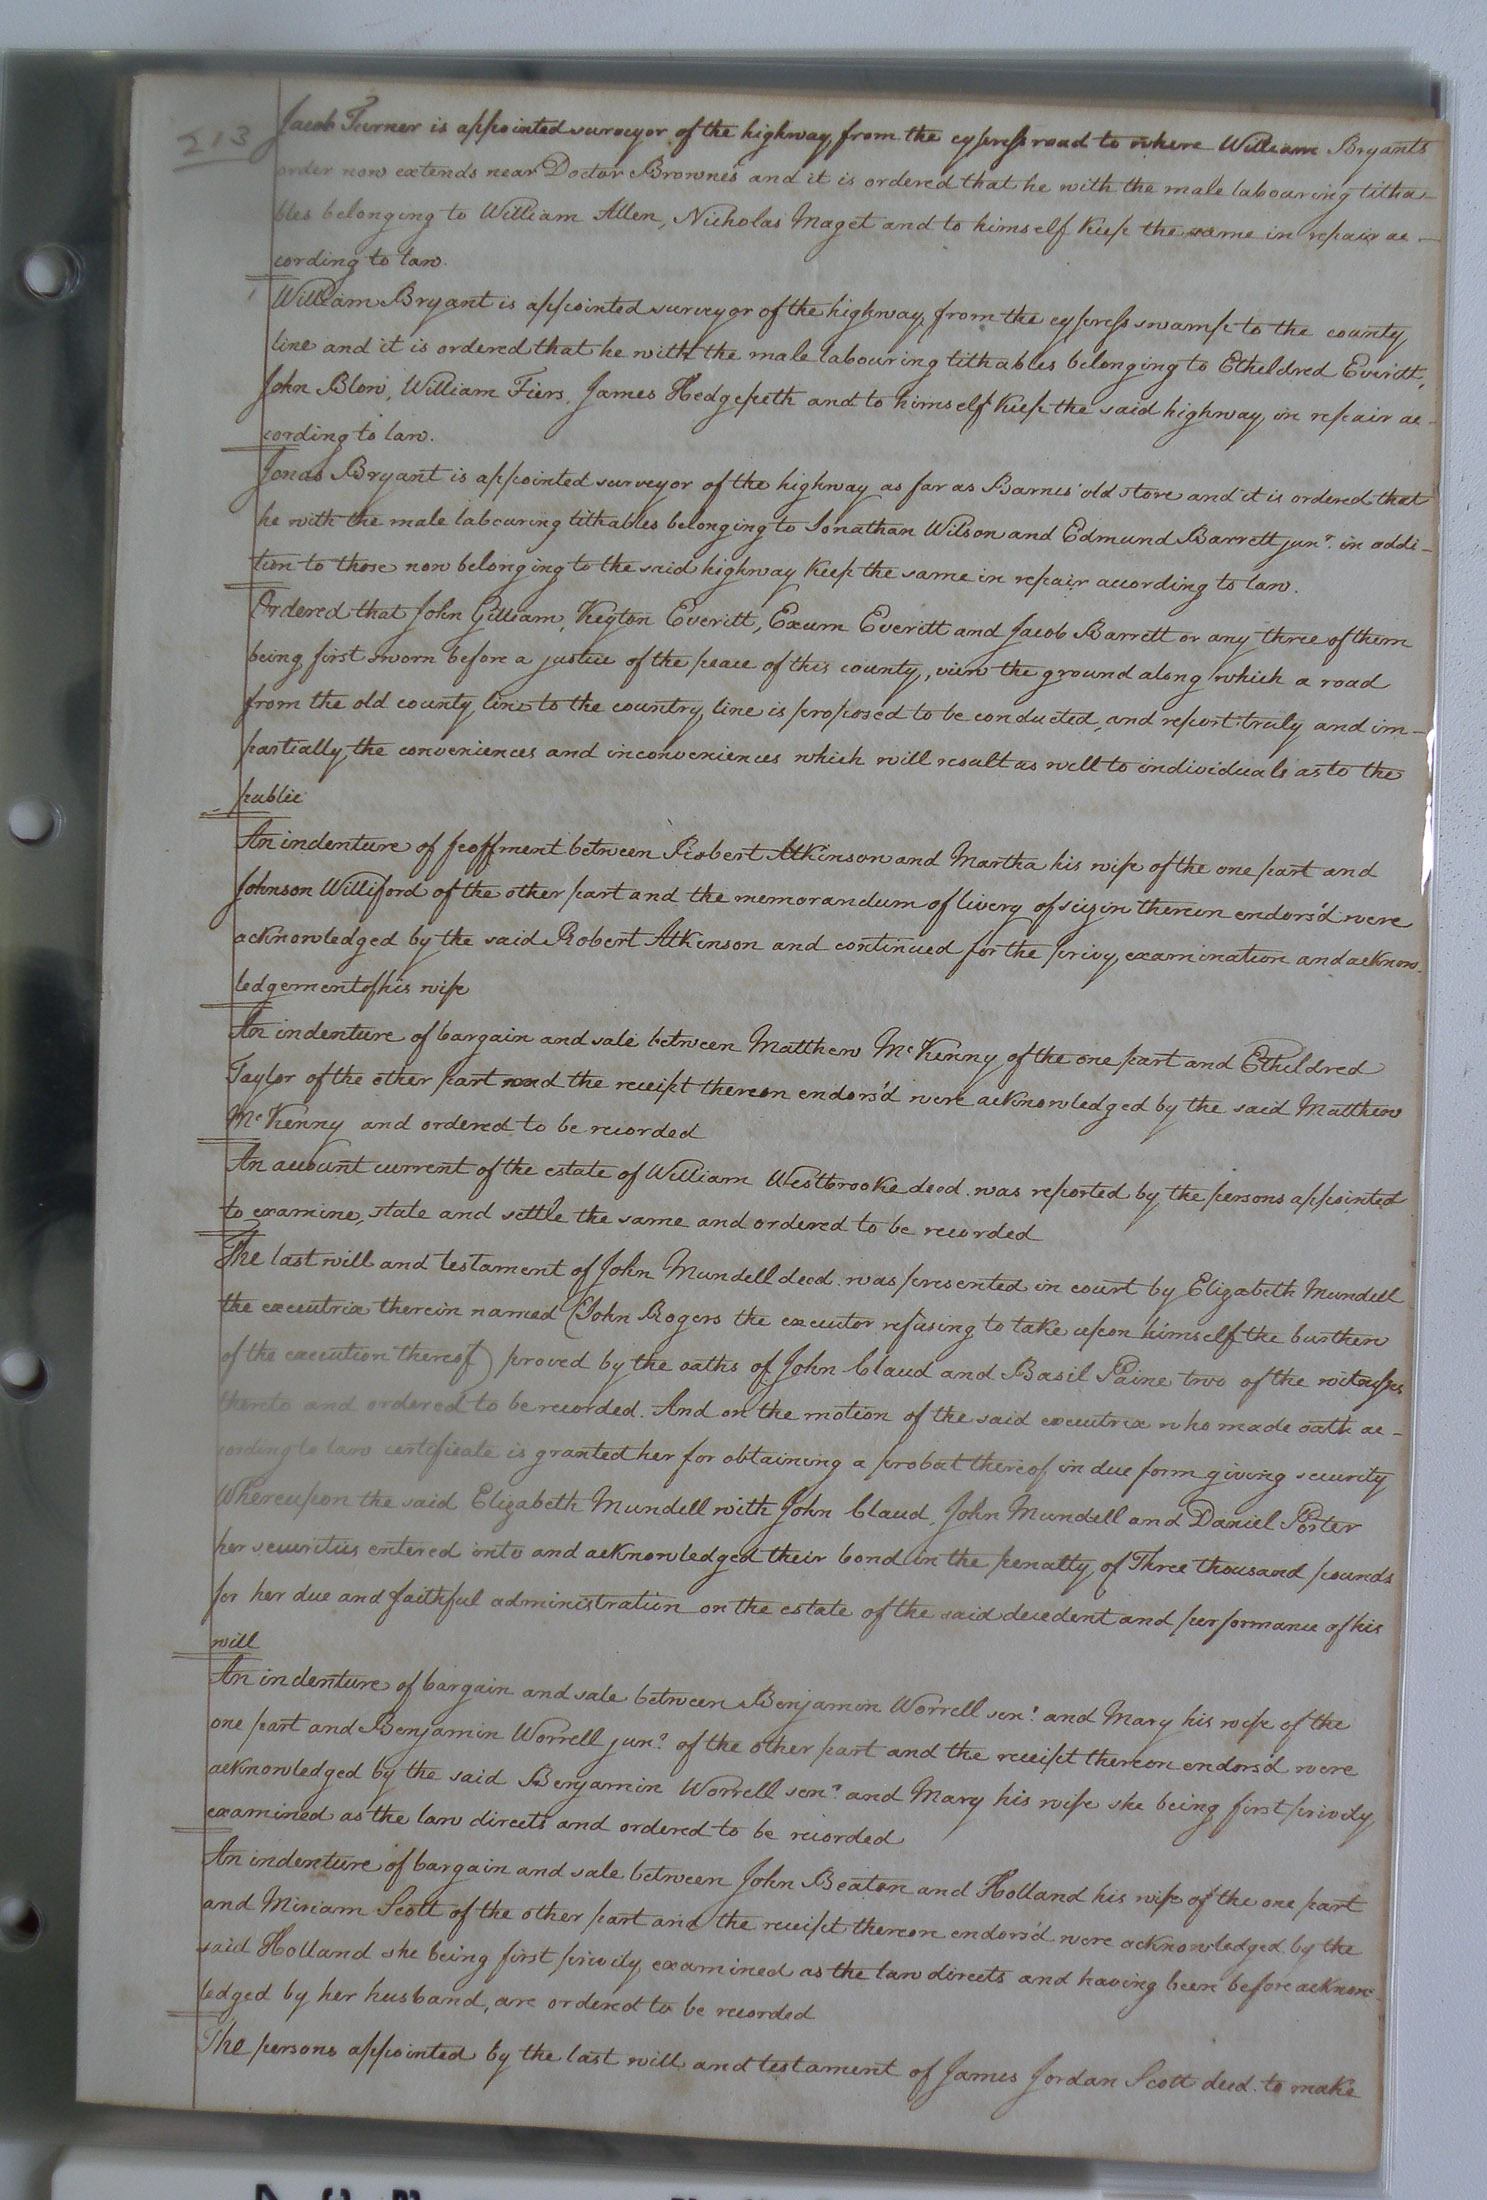 213
Jacob Turner is appointed surveyor of the highway from the cypress road to where William Bryants
order now extends near Doctor Browne's and it is ordered that he with the male labouring titha-
bles belonging to William Allen, Nicholas Maget and to himself keep the same in repair ac-
cording to law.
William Bryant is appointed surveyor of the highway from the cypress swamp to the county
line and it is ordered that he with the male labouring tithables belonging to Etheldred Everitt,
John Blow, William Fiers, James Hedgepeth and to himself keep the said highway in repair ac-
cording to law.
Jonas Bryant is appointed surveyor of the highway as far as Barnes' old store and it is ordered that
he with the male labouring tithables belonging to Jonathan Wilson and Edmund Barrett junr. in addi-
tion to those now belonging to the said highway keep the same in repair according to law.
Ordered that John Gilliam, Keyton Everitt, Exum Everitt and Jacob Barrett or any three of them
being first sworn before a justice of the peace of this county, view the ground along which a road
from the old county line to the country line is proposed to be conducted, and report truly and im-
partially the conveniences and inconveniences which will result as well to individuals as to the
public
An indenture of feoffment between Robert Atkinson and Martha his wife of the one part and
Johnson Williford of the other part and the memorandum of livery of seizin thereon endors'd were
acknowledged by the said Robert Atkinson and continued for the privy examination and acknow-
ledgement of his wife
An indenture of bargain and sale between Matthew McKenny of the one part and Etheldred
Taylor of the other part and the receipt thereon endors'd were acknowledged by the said Matthew
McKenny and ordered to be recorded
An account current of the estate of William Westbrooke decd. was reported by the persons appointed
to examine, state and settle the same and ordered to be recorded
The last will and testament of John Mundell decd. was presented in court by Elizabeth Mundell
the executrix therein named (John Rogers the executor refusing to take upon himself the burthen
of the execution thereof) proved by the oaths of John Claud and Basil Paine two of the witnesses
thereto and ordered to be recorded. And on the motion of the said executrix who made oath ac-
cording to law certificate is granted her for obtaining a probat thereof in due form giving security
Whereupon the said Elizabeth Mundell with John Claud, John Mundell and Daniel Porter
her securities entered into and acknowledged their bond in the penalty of Three thousand pounds
for her due and faithful administration on the estate of the said decedent and performance of his
will
An indenture of bargain and sale between Benjamin Worrell senr. and Mary his wife of the
one part and Benjamin Worrell junr. of the other part and the receipt thereon endors'd were
acknowledged by the said Benjamin Worrell senr. and Mary his wife she being first privily
examined as the law directs and ordered to be recorded
An indenture of bargain and sale between John Beaton and Holland his wife of the one part
and Miriam Scott of the other part and the receipt thereon endors'd were acknowledged by the
said Holland she being first privily examined as the law directs and having been before acknow-
ledged by her husband, are ordered to be recorded
The persons appointed by the last will and testament of James Jordan Scott decd. to make